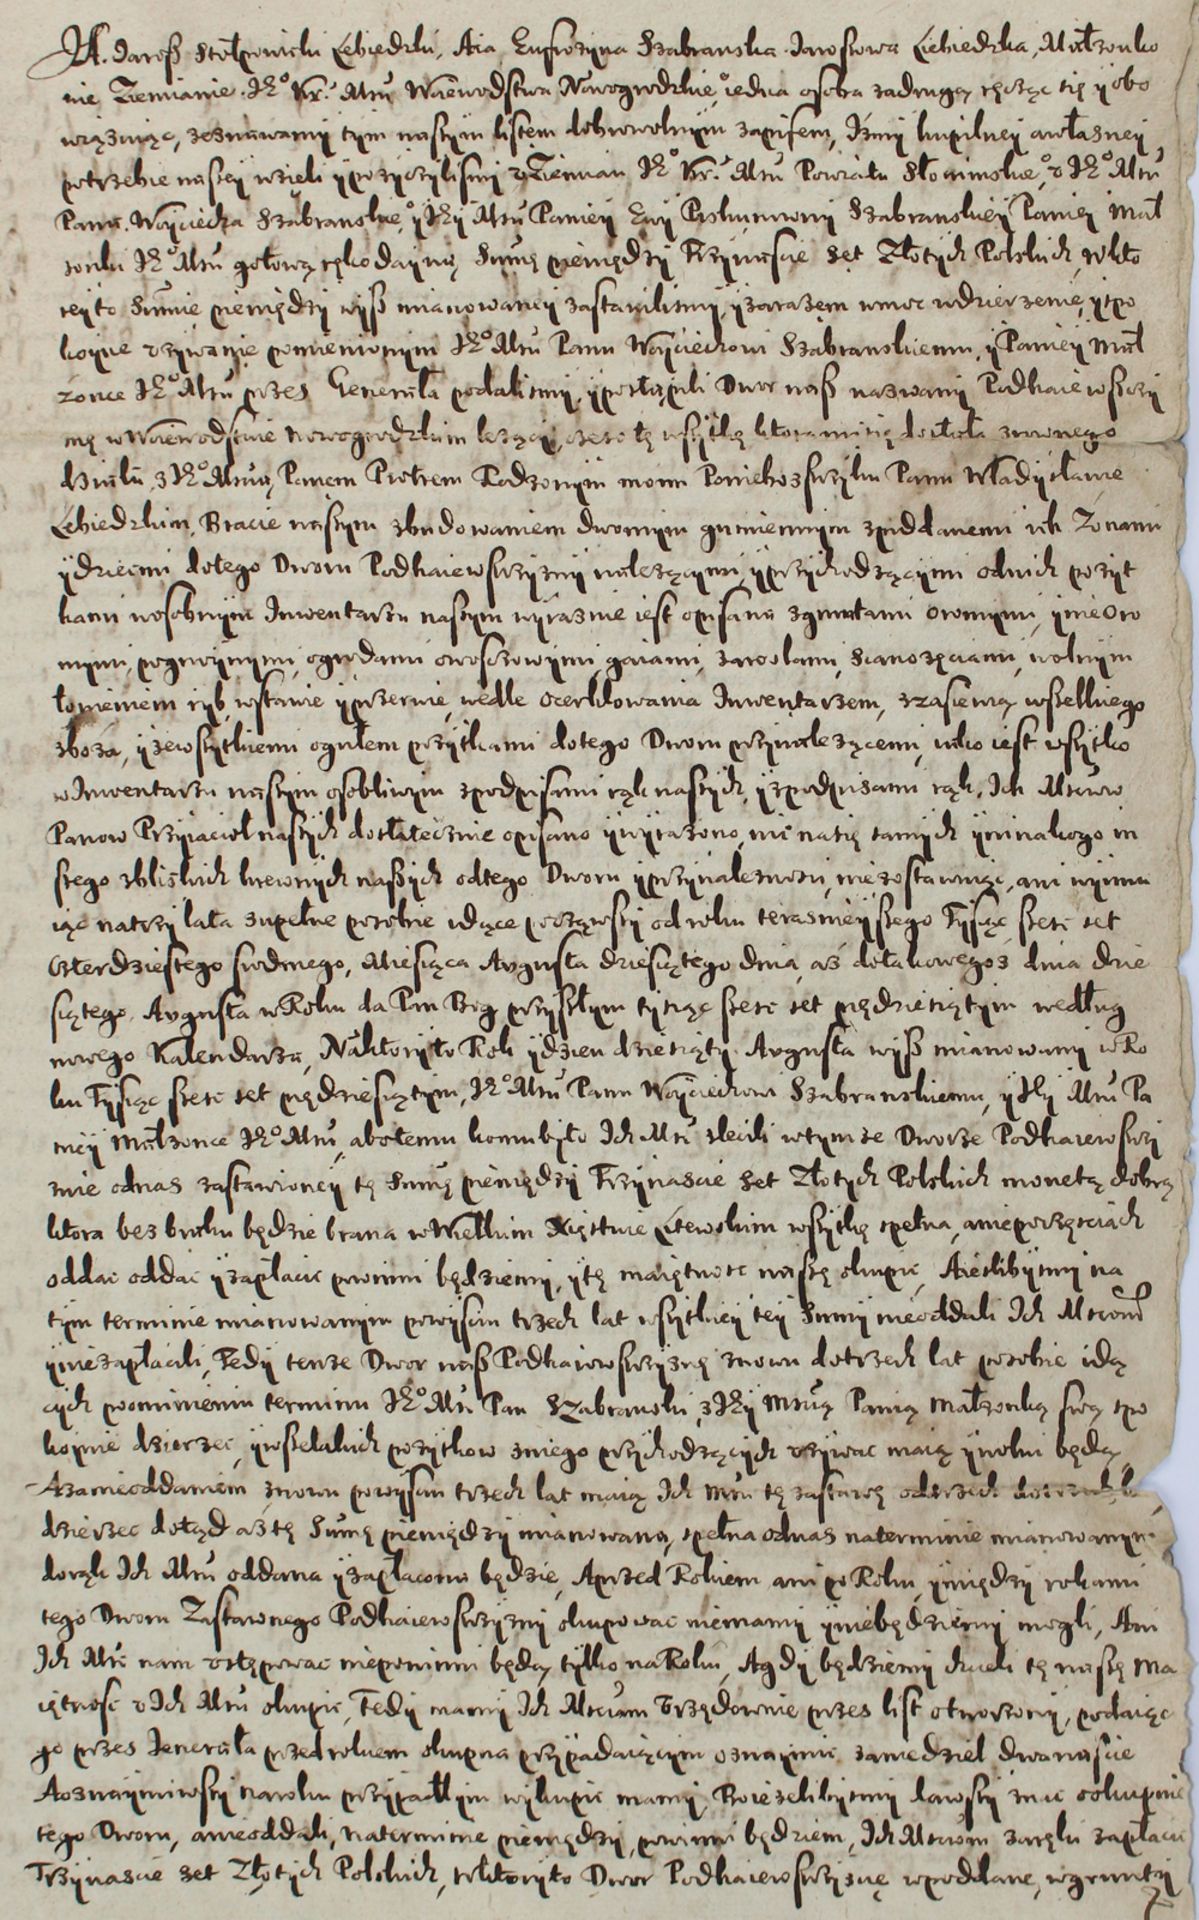 Ja Jarosz Stołpowicki Lebiedzki, Aia Eufrozyna Szabranska Jaroszowa Lebiedzka, Małzonko
nie Ziemianie Je° Kr. Msci Woiewodstwa Nowogrodzkie°, iedna osoba zadrugą ręcząc się y obo
wiązuiąc, zeznawamy tym naszym listem dobrowolnym zapisem, Izmy kupilney awłasney
potrzebie naszey wzieli y pozyczylismy v Ziemian Je° Kr. Msci Powiatu Słonimskie°, v Je° Msci
Pana Woyciecha Szabranskie° y Jey Msci Paniey Ewy Szabranskiey Paniey Mał
zonki Je° Msci gotową rękodayną Sumę pieniędzy Trzynascie set Złotych Polskich, wkto
rey to Sumie pieniędzy wysz mianowaney zastawilismy, y zarazem wmoc wdzierzenie, y spo
koyne vzywanie pomienionym Je° Msci Panu Woyciechowi Szabranskiemu, y Paniey Mał
zonce Je° Msci przez Generała podalismy, y postąpili Dwor nasz nazwany Podhaiewszczy
znę w Woiewodstwie Nowogrodzkim lezący, częsc tę wszytkę ktora mi się dostała zrownego
działu, z Je° Mscią Panem Piotrem Rodzonym moim Ponieboszczyku Panu Władysławie
Lebiedzkim Bracie naszym zbudowaniem dwornym gumiennym zpoddanemi ich Zonami
y dziecmi dotego Dworu Podhaiewszczyzny nalezącymi, y przychodzącymi odnich pozyt
kami wosobnym Inwentarzu naszym wyraznie iest opisano zgruntami ornymi, y nieOro
mymi, ogrodami owoscowymi, gaiami, zaroslami, Sianozęciami, wolnym
łowieniem ryb, wstawie y wrzerwie, wedle Inwentarzem, zzasiewią wszelkiego
zboza, y zewszytkiemi ogułem pozytkami dotego Dworu przynalezącemi, iako iest wszytko
wInwentarzu naszym osobliwym zpodpisami rąk naszych, y zpodpisami rąk, Ich Msciow
Panow Przyiacioł naszych dostatecznie opisano y wyrazono, nic nasię samych y ninakogo in
szego zbliskich krewnych naszych odtego Dworu y przynaleznosci, niezostawuiąc, ani wyimu
iąc natrzy lata zupełne posobie idące począwszy od roku terazneyszego Tysiąc szesc set
Czterdziestego siodmego, Miesiąca Avgusta dziesiątego dnia, az dotakowegoz dnia dzie
siątego Avgusta w Roku da Pan Bog przyszłym tysiąc szesc set pięcdziesiątym według
nowego Kalendarza, Naktoryto Rok y dzien dziesiąty Avgusta wysz mianowany w Ro
ku Tysiąc szesc set pięcdziesiątym, Je° Msci Panu Woyciechowi Szabranskiemu, y Jey Msci Pa
niey Małzonce Je° Msci, abotemu komubyto Ich Msci zlecili wtymze Dworze Podhaiewszczy
znie odnas zastawioney tę Sumę pieniędzy Trzynascie set Złotych Polskich monetą dobrą
ktora bez braku będzie brana w Wielkim Xięstwie Litewskim wszytkę spełna, aniepoczęsciach
oddac oddac y zapłacic powinni będziemy, y tę maiętnosc naszę okupic, Aieslibysmy na
tym terminie mianowanym powyisciu trzech lat wszytkiey tey Sumy nieoddali Ich Msciom
y niezapłacili, Tedy tenze Dwor nasz Podhaiewszczyznę znowu dotrzech lat posobie idą
cych pominieniu terminu Je° Msc Pan Szabranski, z Jey Mscią Panią Małzonką swą spo
koynie dzierzec, y wszelakich pozytkow zniego przychodzących vzywac maią y wolni będą,
Azanieoddaniem znowu powyisciu trzech lat maią Ich Msci tę zastawę odtrzech dotrzech
dzierzec dotąd aztę Sumę pieniędzy mianowaną, spełna odnas naterminie mianowanym
dorąk Ich Msci oddana y zapłacona będzie, Aprzed Rokiem ani po Roku, y między rokami
tego Dworu Zastawnego Podhaiewszczyzny okupowac niemamy y niebędziemy mogli, Ani
Ich Msc nam vstępowac niepowinni będą, tylko naRoku, Agdy będziemy chcieli tę naszę Ma
iętnosc v Ich Msci okupic, Tedy mamy Ich Msciom Vrzędownie przez list otworzony, podaiąc
go przez Jenerała przedrokiem okupna przypadaiącym oznaymic zaniedziel dwanascie
Aoznaymiwszy naroku przypadłym wykupic mamy, Bo iezelibysmy dawszy znac ookupnie
tego Dworu, anieoddali, naterminie pieniędzy, powinni będziem, Ich Msciom zaręki zapłacic
Trzynascie set Złotych Polskich, wktoryto Dwor Podhaiewszczyznę wpoddane, wgrunty